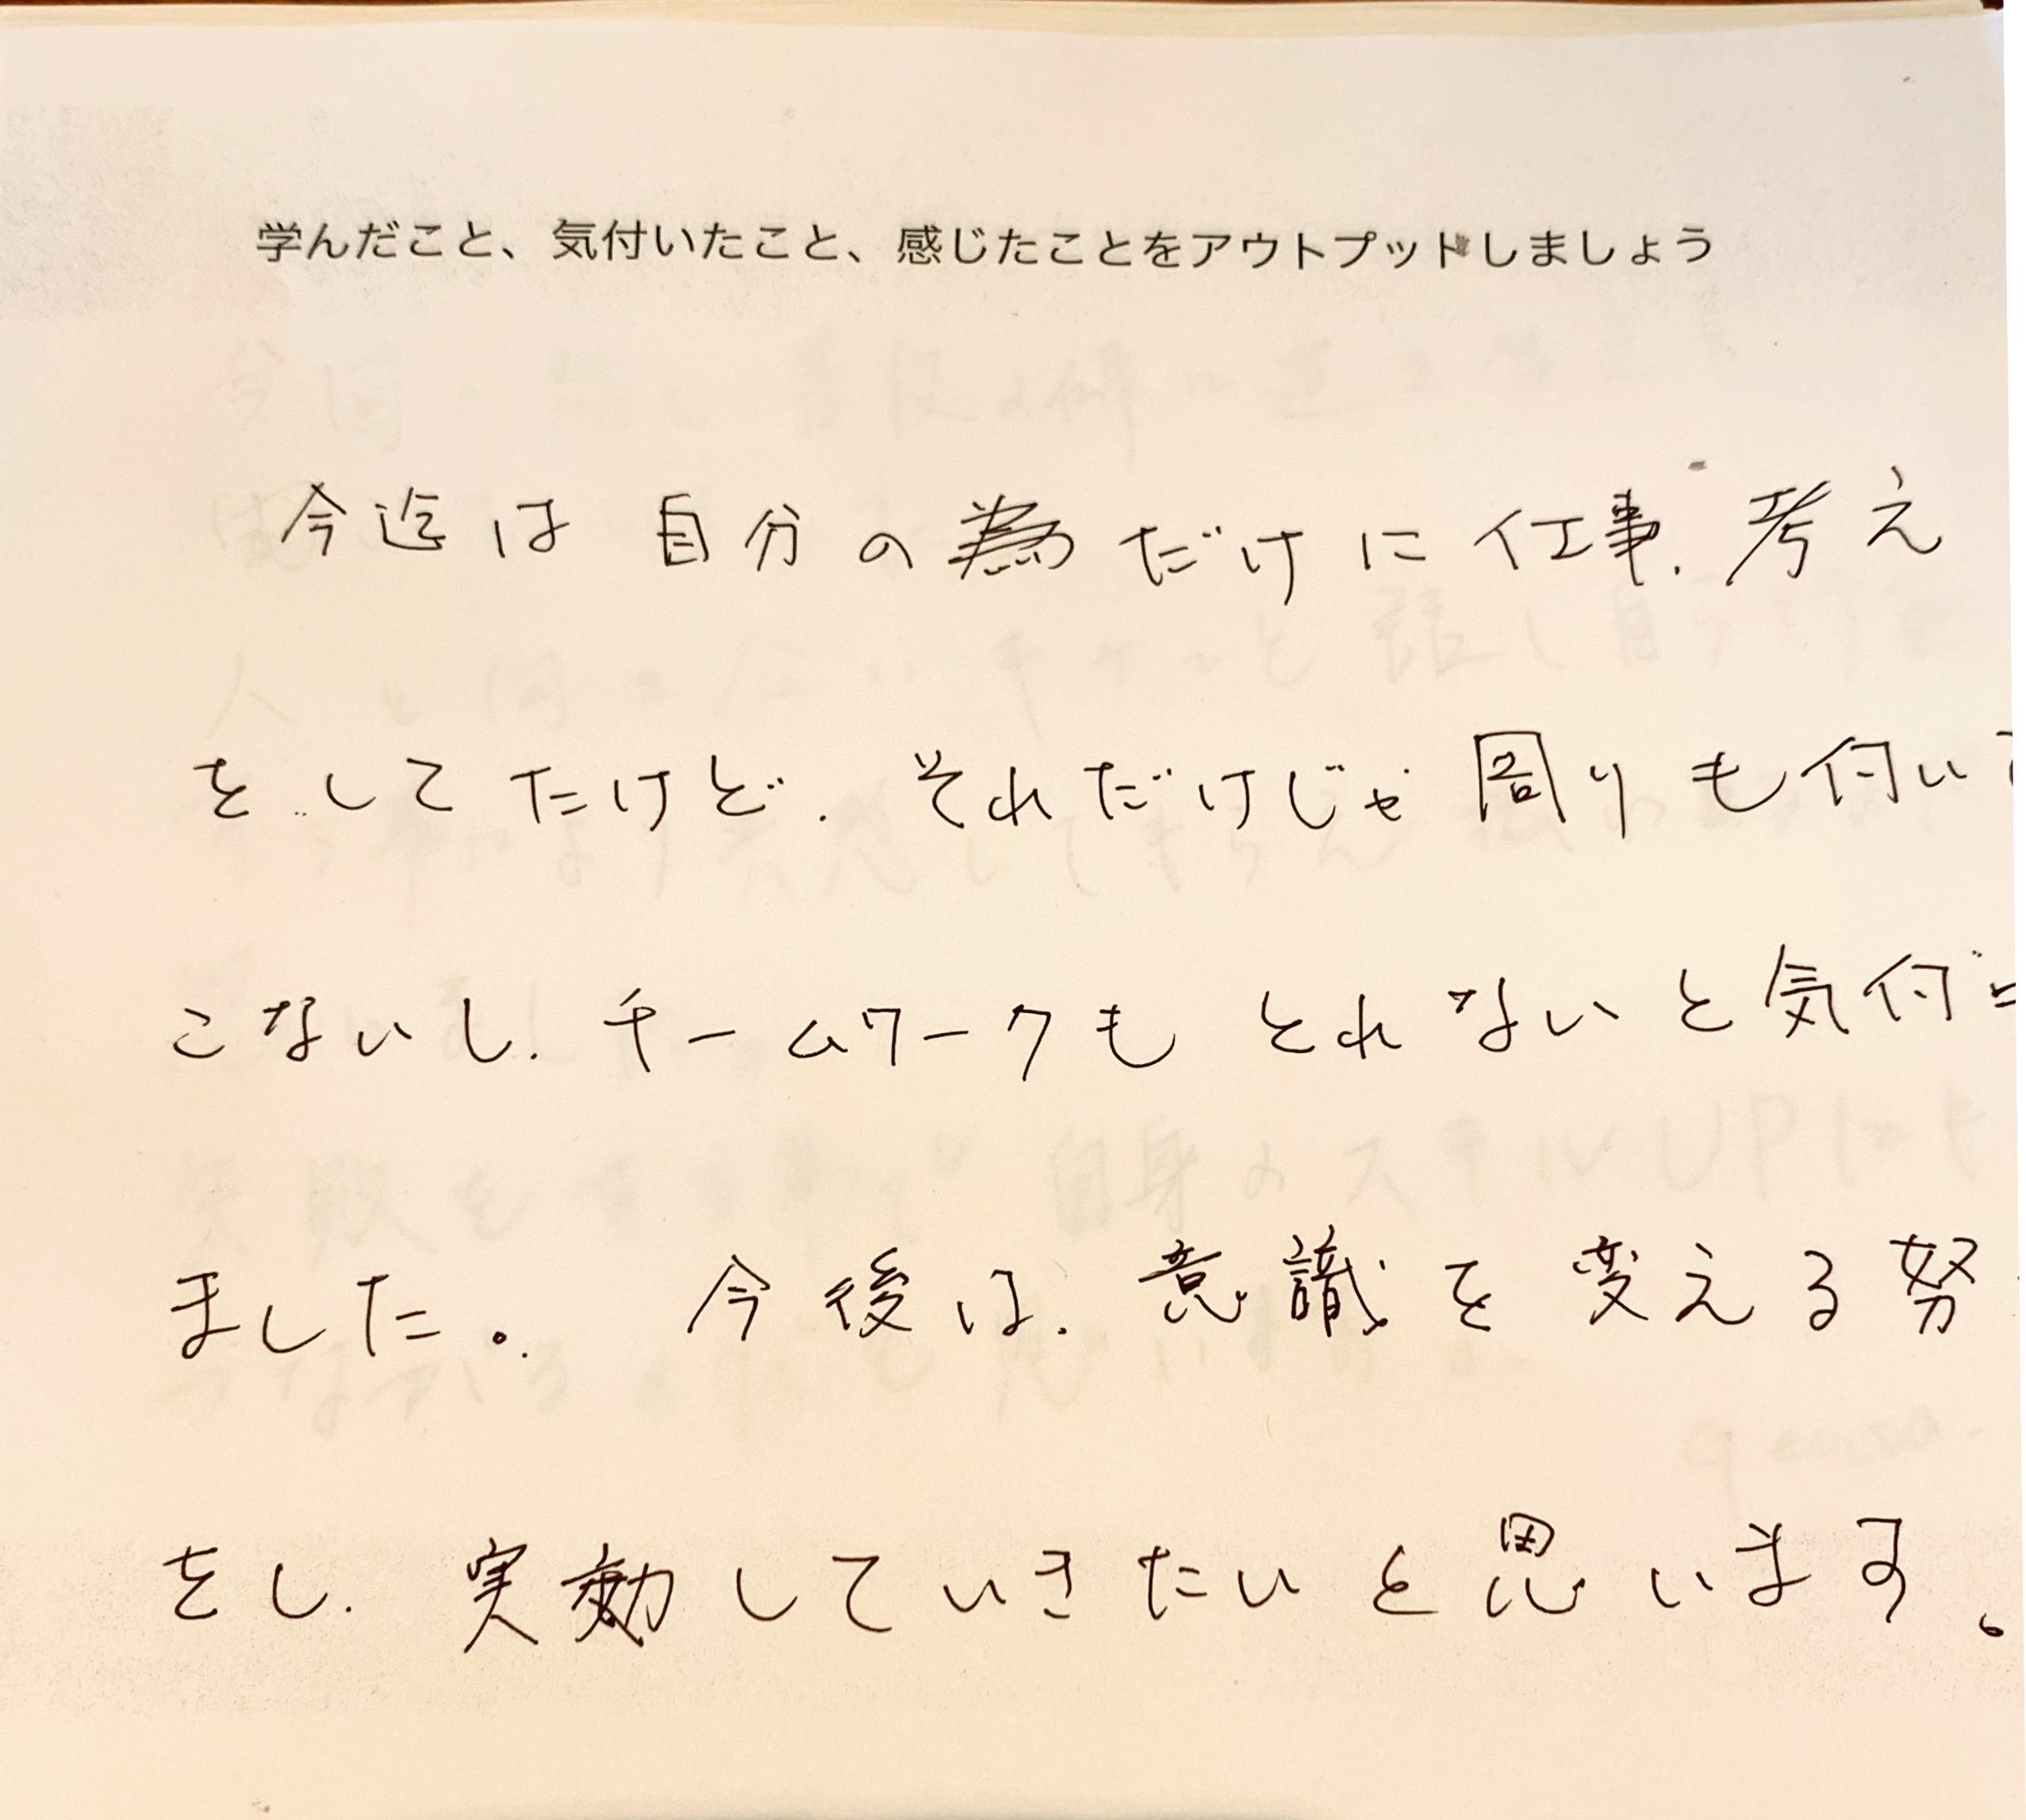 学んだこと、気付いたこと、感じたことをアウトプットしましょう
今迄は自分の為だけに仕事、考え
をしてたけど、それだけじゃ周りも付いて
こないし、チームワークもとれないと気付
ました。 今後は、意識を変える努
をし、実動していきたいと思います。